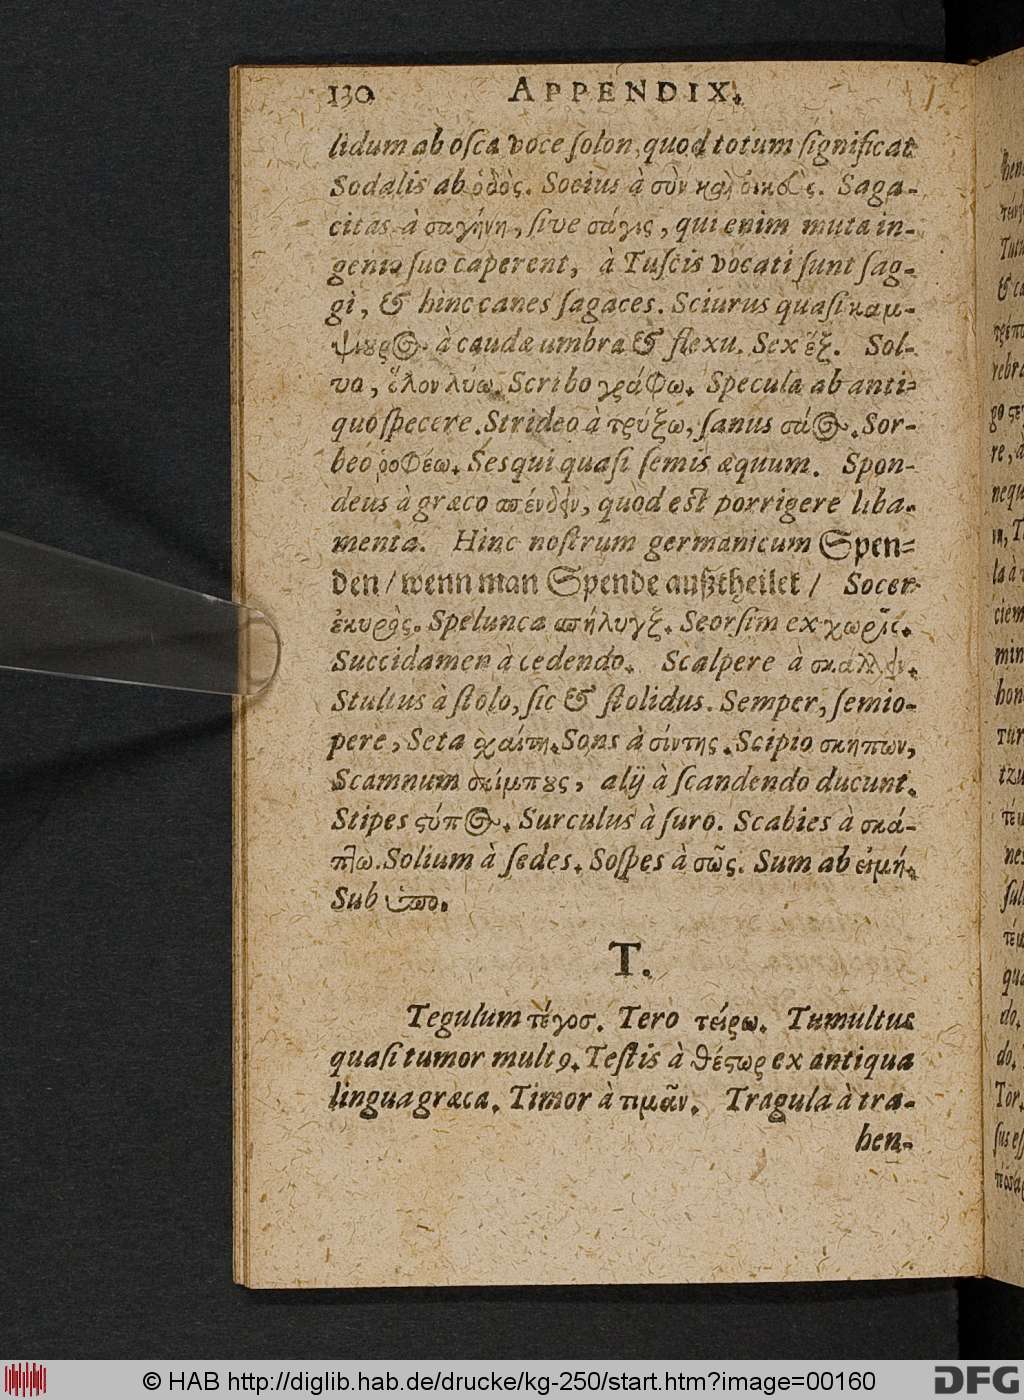 130 APPENDIX.
lidum ab osca voce solon, quod totum significat
Sodalis ab ὁδὸς. Socius à σὺν καὶ οἶκος. Saga-
citas à σαγήνη, sive σάγις, qui enim muta in-
genio suo caperent, à Tuscis vocati sunt sag-
gi, & hinc canes sagaces. Sciurus quasi καμ-
ψίουρος à caudæ umbra & flexu. Sex ἕξ. Sol-
vo, ὅλον λύω. Scribo γράφω. Specula ab anti-
quo specere. Strideo à τρύξω, sanus σάος. Sor-
beo ῥοφέω. Sesqui quasi semis æquum. Spon-
deus à græco σπένδειν, quòd est porrigere liba-
menta. Hinc nostrum germanicum Spen-
den / wenn man Spende außtheilet / Socer
ἑκυρὸς. Spelunca σπήλυγξ. Seorsim ex χωρὶς.
Succidamen à cedendo. Scalpere à σκάλλειν.
Stultus à stolo, sic & stolidus. Semper, semio-
pere, Seta χαίτη. Sons à σίντης. Scipio σκήπων,
Scamnum σκίμπους, alij à scandendo ducunt.
Stipes στύπος. Surculus à suro. Scabies à σκά-
πτω. Solium à sedes. Sospes à σῶς. Sum ab εἰμή.
Sub ὑπο.
T.
Tegulum τέγοσ. Tero τείρω. Tumultus
quasi tumor multꝰ. Testis à θέστωρ ex antiqua
lingua græca. Timor à τιμᾶν. Tragula à tra-
hen-
© HAB http://diglib.hab.de/drucke/kg-250/start.htm?image=00160
DFG